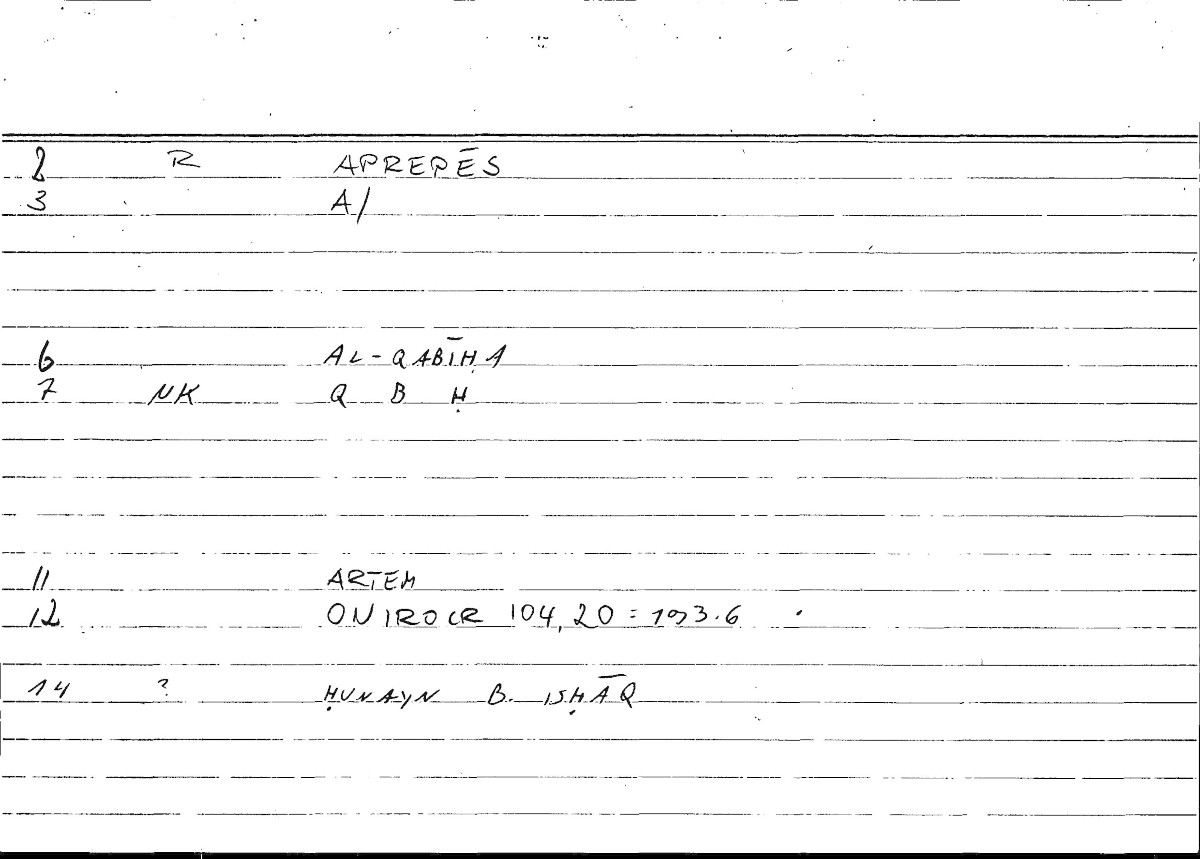 2 R APREPĒS
3 A/
6 AL-QABĪḤA
7 NK Q B Ḥ
11 ARTEM
12 ONIROCR 104,20 = 193.6
14 ? ḤUNAYN B. ISḤĀQ